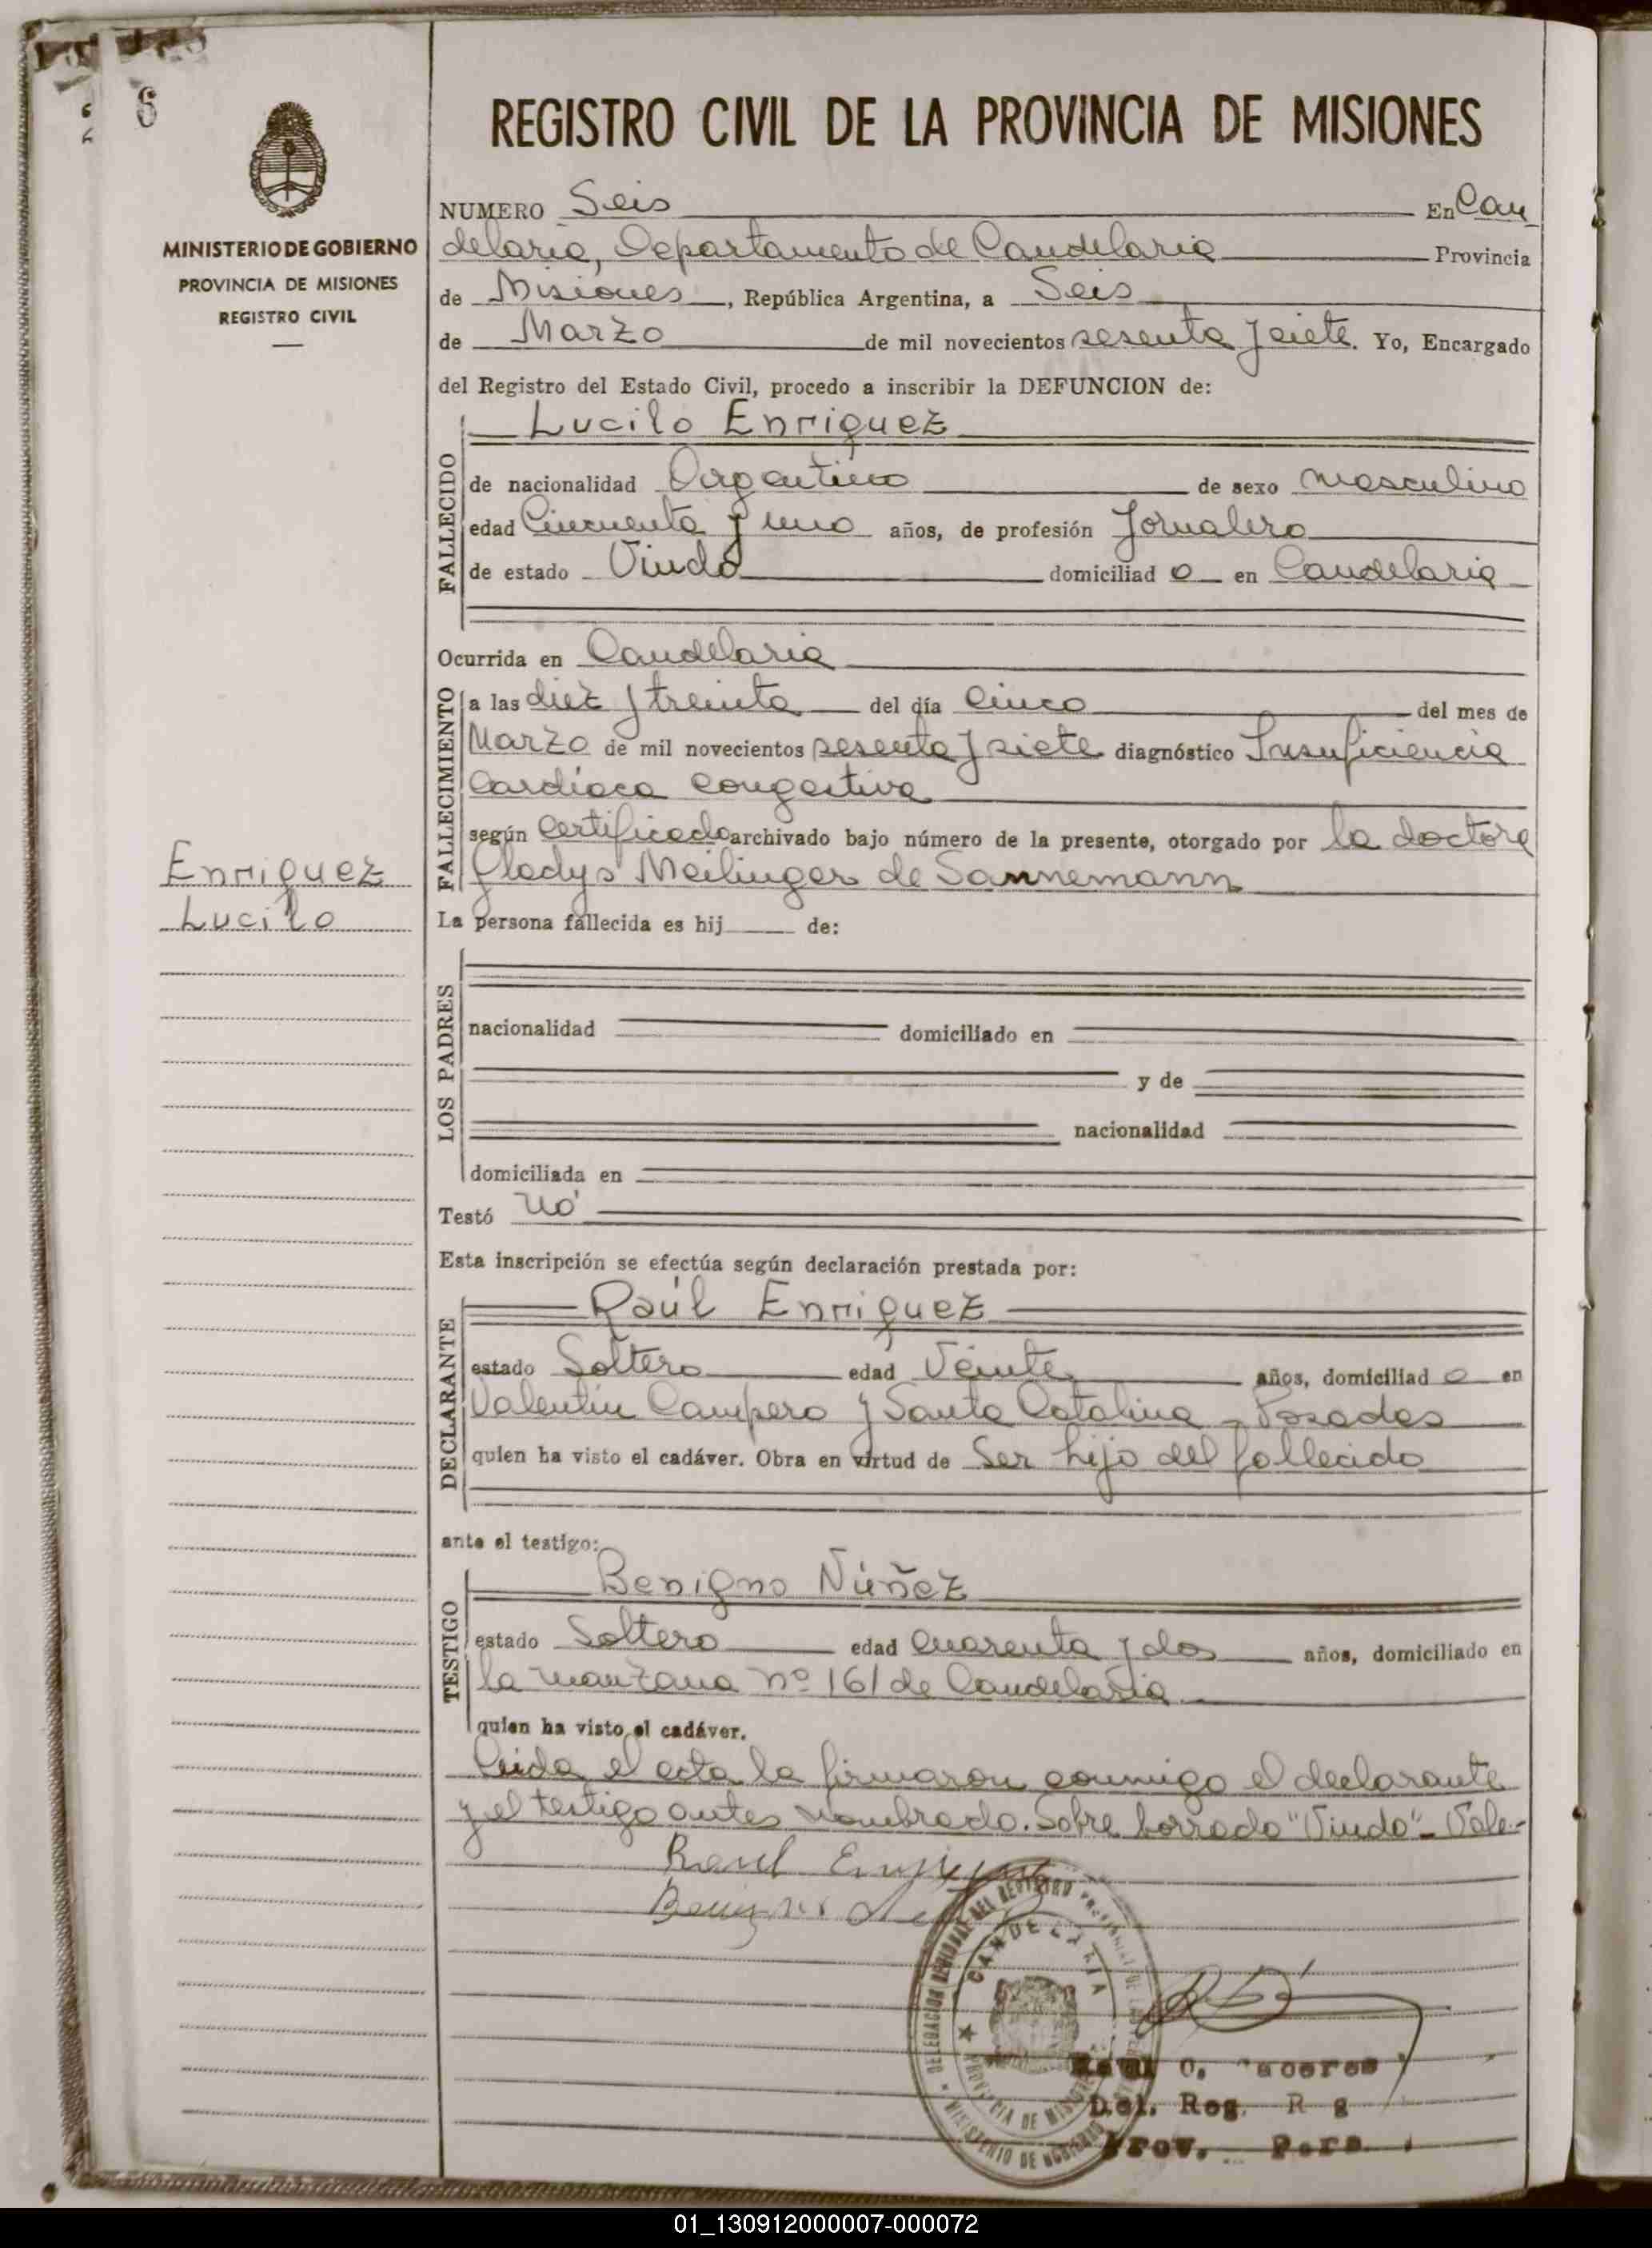 6
MINISTERIO DE GOBIERNO
PROVINCIA DE MISIONES
REGISTRO CIVIL
Enriquez
Lucilo
REGISTRO CIVIL DE LA PROVINCIA DE MISIONES
NUMERO Seis En Can
delaria, Departamento de Candelaria Provincia
de Misiones, República Argentina, a Seis
de Marzo de mil novecientos sesenta y siete. Yo, Encargado
del Registro del Estado Civil, procedo a inscribir la DEFUNCION de:
Lucilo Enriquez
FALLECIDO
de nacionalidad Argentino de sexo masculino
edad Cincuenta y uno años, de profesión Jornalero
de estado Viudo domiciliad o en Candelaria
Ocurrida en Candelaria
FALLECIMIENTO
a las diez y treinta del día Cinco del mes de
Marzo de mil novecientos sesenta y siete diagnóstico Insuficiencia
Cardíaca congestiva
según Certificado archivado bajo número de la presente, otorgado por la doctora
Gladys Meilinger de Sannemann
La persona fallecida es hij de:
LOS PADRES
nacionalidad domiciliado en
y de
nacionalidad
domiciliada en
Testó no
Esta inscripción se efectúa según declaración prestada por:
Raúl Enriquez
DECLARANTE
estado Soltero edad Veinte años, domiciliad o en
Valentín Campero y Santa Catalina - Posadas
quien ha visto el cadáver. Obra en virtud de Ser hijo del fallecido
ante el testigo:
Benigno Núñez
TESTIGO
estado Soltero edad Cuarenta y dos años, domiciliado en
la manzana nº 161 de Candelaria
quien ha visto el cadáver.
Leida el acta la firmaron conmigo el declarante
y el testigo antes nombrado. Sobre borrado "Viudo" - Vale.-
Raul
CANDELARIA
PROVINCIA DE MISIONES
MINISTERIO DE GOBIERNO
Del. Reg.
Prov. Pers.
01_130912000007-000072